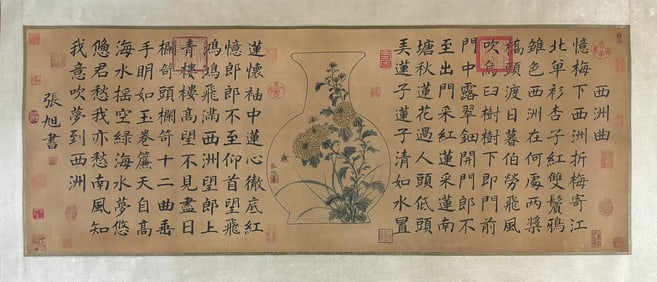 西洲曲
憶梅下西洲折梅寄江
北單衫杏子紅雙鬢鴉
雛色西洲在何處兩槳
橋頭渡日暮伯勞飛風
吹烏臼樹樹下即門前
門中露翠鈿開門郎不
至出門采紅蓮采蓮南
塘秋蓮花過人頭低頭
弄蓮子蓮子清如水置
蓮懷袖中蓮心徹底紅
憶郎郎不至仰首望飛
鴻鴻飛滿西洲望郎上
青樓樓髙望不見盡日
欄杆頭欄杆十二曲垂
手明如玉卷簾天自髙
海水搖空綠海水夢悠
悠君愁我亦愁南風知
我意吹夢到西洲
張旭書